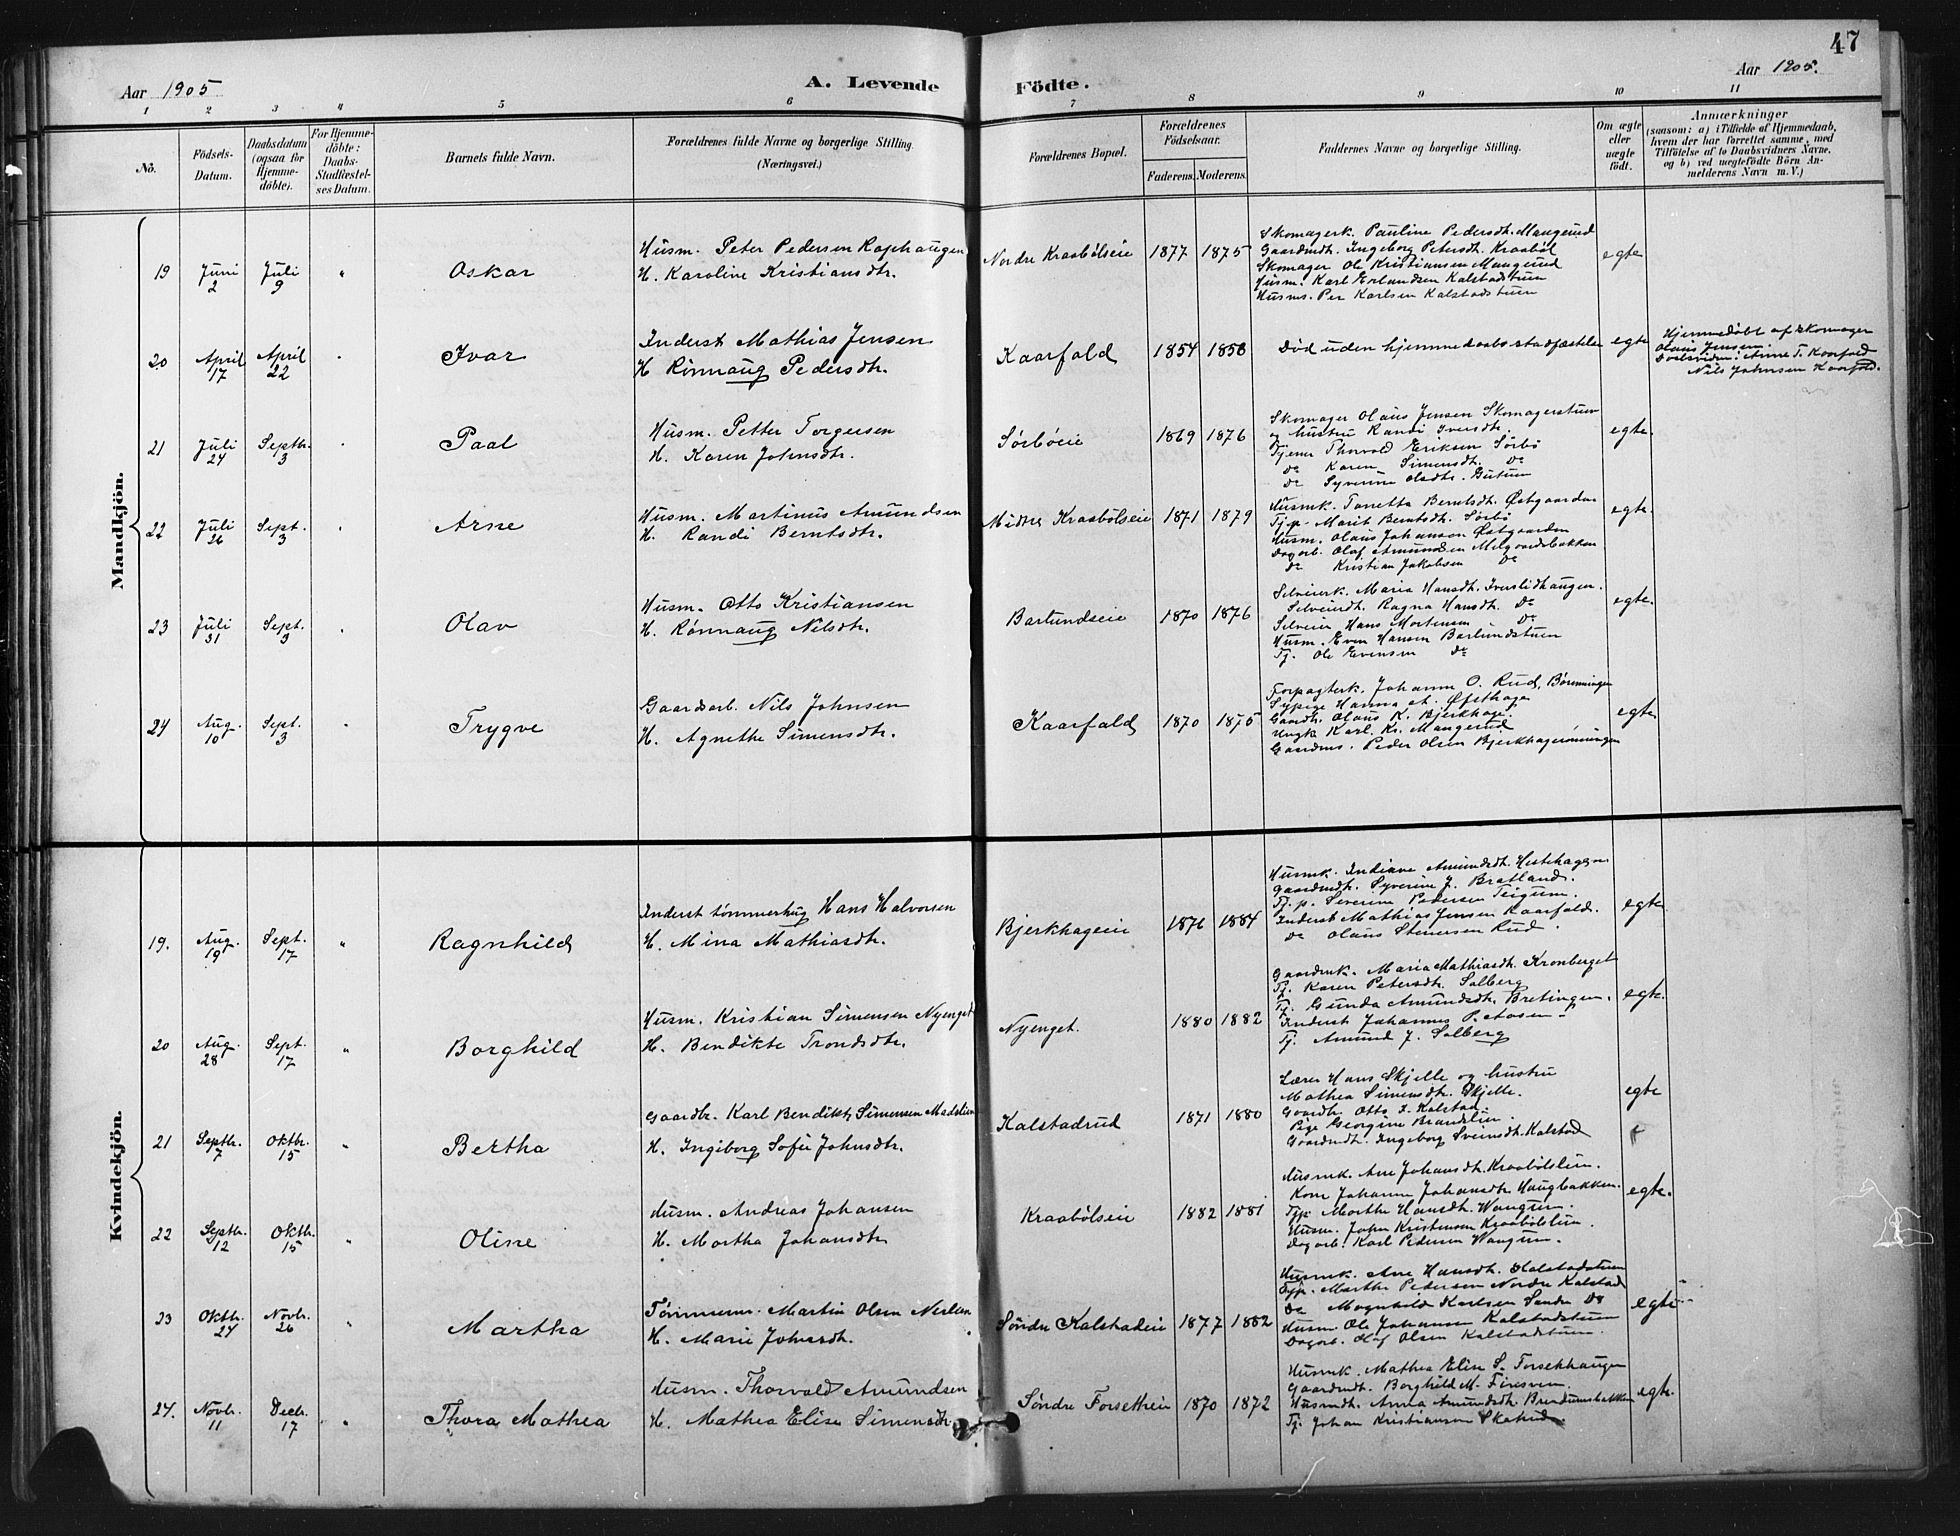 47
Aar 1905
A. Levende
Födte.
Aar 1905.
1 2 3 4 5 6 7 8 9 10 11
No.
Födsels-
Datum.
Daabsdatum
(ogsaa for
Hjemme-
döbte).
For Hjemme-
döbte:
Daabs-
Stadfæstel-
ses Datum.
Barnets fulde Navn.
Forældrenes fulde Navne og borgerlige Stilling.
(Næringsvei.)
Forældrenes Bopæl.
Forældrenes
Födselsaar.
Faderens. Moderens.
Faddernes Navne og borgerlige Stilling.
Om ægte
eller
uægte
födt.
Anmærkninger
(saasom: a) i Tilfælde af Hjemmedaab,
hvem der har forrettet samme, med
Tilföielse af to Daabsvidners Navne,
og b) ved uegtefödte Börn An-
melderens Navn m. V.)
Mandkjön.
19
Juni
2
Juli
9
"
Oskar
Husm. Peter Pedersen Rophaugen
H. Karoline Kristiansdtr.
Nordre Kraabølseie
1877 1875
Skomagerk. Pauline Pedersdt. Maugerud
Gaardmdt. Ingeborg Petersdt. Kraabøl
Skomager Ole Kristiansen Maugerud
Husm. Karl Erlandsen Kalstadstuen
Husms. Per Karlsen Kalstadstuen
egte
20
April
17
April
22
Ivar
Inderst Mathias Jensen
H Rønnaug Pedersdtr.
Kaarfald
1854 1858
Død uden hjemmedaabsstadfæstelse
egte
Hjemmedøbt af Skomager
Olaus Jensen.
Daabsvidn: Anne T. Kaarfald
Nils Johnsen Kaarfald.
21
Juli
24
Septbr.
3
Paal
Husm. Petter Torgersen
H. Karen Johnsdtr.
Sørbøeie
1869 1876
Skomager Olaus Jensen Skomagerstuen
og hustru Randi Iversdt.
Tjener Thorvald Eriksen Sørbø
Do Karen Simensdt. Do
Do Syverine Olsdtr. Gutum
egte.
22
Juli
26
Sept.
3
Arne
Husm. Martinus Amundsen
H. Randi Berntsdtr.
Midtre Kraabølseie
1871 1879
Husmk. Tonetta Berntsdt. Østgaarden
Tj.p. Marit Berntsdt. Sørbø
Husm. Olaus Johansen Østgaarden
Dagarb. Olaf Amundsen Melgaardsbakken
Do Kristian Jakobsen Do
egte.
23
Juli
31
Sept.
3
Olav
Husm. Otto Kristiansen
H. Rønnaug Nilsdtr.
Barlundseie
1870 1876
Selveierk. Maria Hansdt. Iverslidhaugen.
Selveierdt. Ragna Hansdt. Do
Selveier Hans Mortensen Do
Husm. Even Hansen Barlundstuen
Tj. Ole Evensen Do
egte.
24
Aug.
10
Sept.
3
"
Trygve
Gaardsarb. Nils Johnsen
H. Agnethe Simensdtr.
Kaarfald
1870 1875
Forpagterk. Johanne O. Rud, Børenningen
Sypige Hanna At. Øfsthage
Gaardbr. Olaus K. Bjerkhage.
Ungk. Karl Kr. Maugerud
Gaardms. Peder Olsen Bjerkhagerønningen
egte
Kvindekjön.
19.
Aug.
19
Sept.
17
"
Ragnhild
Inderst tømmerhug Hans Halvorsen
H. Mina Mathiasdtr.
Bjerkhageeie
1876 1884
Husmk. Indiane Amundsdt. Hestehagen
Gaardmdt. Syverine J. Bratland.
Tj.p. Severine Pedersen Teigum.
Inderst Mathias Jensen Kaarfald.
Do Olaus Stenersen Rud.
egte
20
Aug.
28
Sept.
17
"
Borghild
Husm. Kristian Simensen Nyenget
H. Bendikte Trondsdtr.
Nyenget.
1880 1882
Gaardmk. Maria Mathiasdt. Kronberget
Tj. Karen Petersdt. Solberg
Tj. Gunda Amundsdt. Bretingen.
Inderst Johannes P. Aasen
Tj. Amund J. Solberg
egte.
21
Septbr.
7
Oktbr.
15
"
Bertha
Gaardbr. Karl Bendikt Simensen Madslien
H. Ingeborg Sofie Johnsdtr.
Kalstadrud
1871 1880
Lærer Hans Skjelle og hustru
Mathea Simensdt. Skjelle.
Gaardbr. Otto I. Kalstad
Pige Georgine Brandslien.
Gaardmdt. Ingeborg Sveinsdt. Kalstad
egte
22
Septbr.
12
Oktbr.
15
"
Oline
Husm. Andreas Johansen
H. Martha Johansdtr
Kraabølseie
1882 1881
Husmk. Ane Johansdt. Kraabølslien.
Kone Johanne Johansdtr. Haugbakken.
Tjp. Marthe Hansdt. Waugum.
Husm. John Kristensen Kraabølslien.
Dagarb. Karl Pedersen Waugum.
egte.
23
Oktbr.
24
Novbr.
26
"
Martha
Tømmerm. Martin Olsen Nerlien
H. Marie Johnsdtr.
Søndre Kalstadeie
1877 1882
Husmk. Ane Hansdt. Kalstadstuen
Tjp. Marthe Pedersen Nordre Kalstad
Do Magnhild Karlsen Søndre Do
Husm. Ole Johansen Kalstadstuen
Dagarb. Olaf Olsen Kalstadstuen.
egte
24.
Novbr.
11
Decb.
17
"
Thora Mathea
Husm. Thorvald Amundsen
H. Mathea Elise Simensdtr
Søndre Forsetheie
1870 1872
Husmk. Mathea Elise S. Forsethhaugen
Gaardmdt. Borghild M. Firesven.
Husmdt. Anna Amundsdt. Brendumsbakken
Tj. Johan Kristiansen Skatrud.
egte.